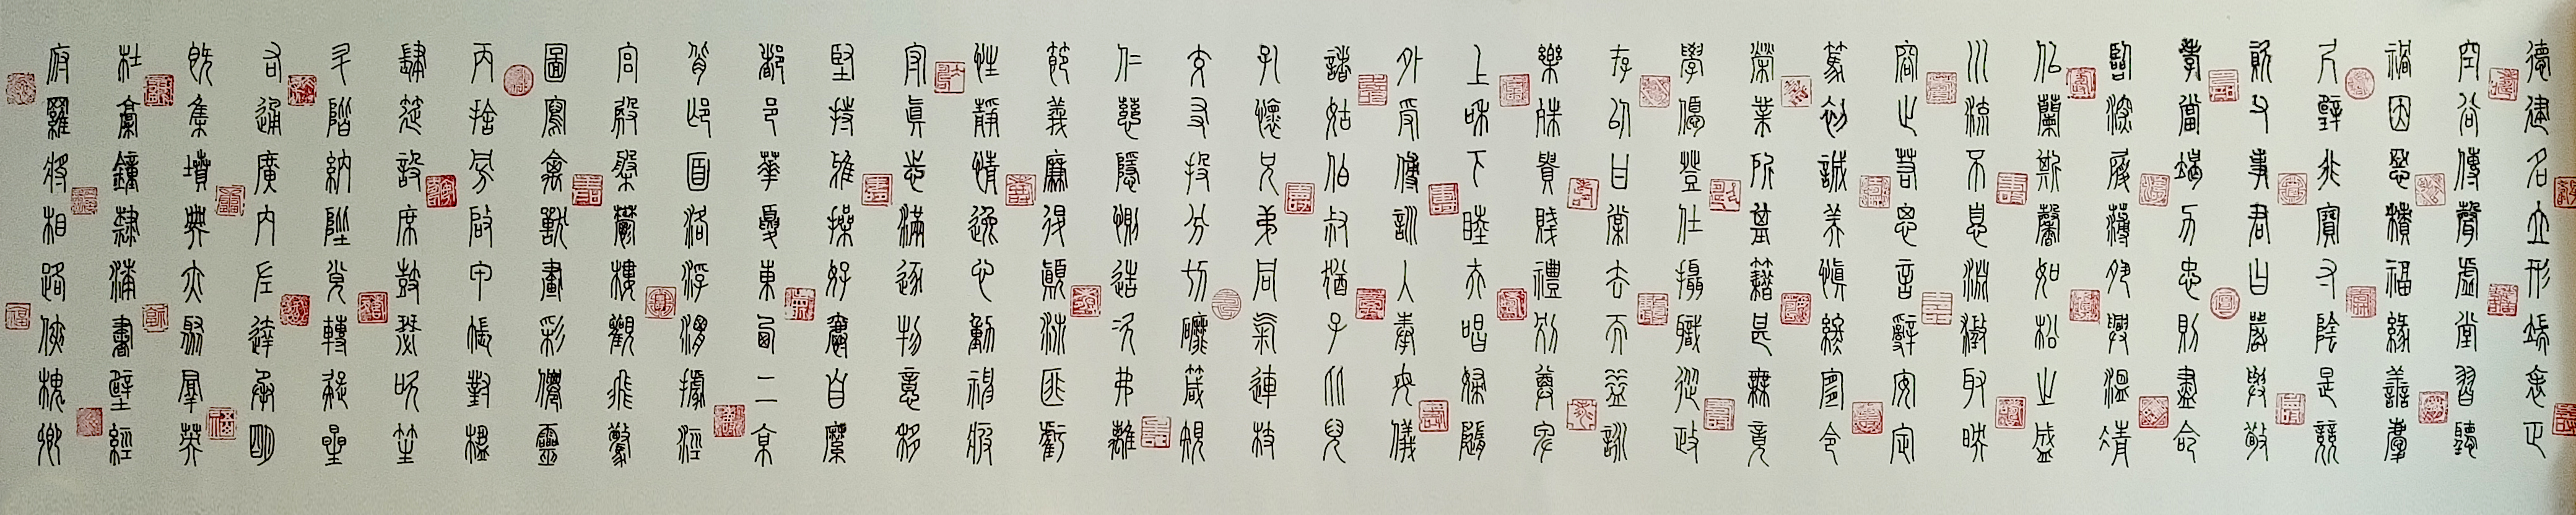 德建名立形端表正
空谷傳聲虛堂習聽
禍因惡積福緣善慶
尺璧非寶寸陰是競
資父事君曰嚴與敬
孝當竭力忠則盡命
臨深履薄夙興溫凊
似蘭斯馨如松之盛
川流不息淵澄取映
容止若思言辭安定
篤初誠美慎終宜令
榮業所基籍甚無竟
學優登仕攝職從政
存以甘棠去而益詠
樂殊貴賤禮別尊卑
上和下睦夫唱婦隨
外受傅訓入奉母儀
諸姑伯叔猶子比兒
孔懷兄弟同氣連枝
交友投分切磨箴規
仁慈隱惻造次弗離
節義廉退顛沛匪虧
性靜情逸心動神疲
守真志滿逐物意移
堅持雅操好爵自縻
都邑華夏東西二京
背邙面洛浮渭據涇
宮殿盤鬱樓觀飛驚
圖寫禽獸畫彩仙靈
丙舍傍啟甲帳對楹
肆筵設席鼓瑟吹笙
升階納陛弁轉疑星
右通廣內左達承明
既集墳典亦聚群英
杜稾鍾隸漆書壁經
府羅將相路俠槐卿